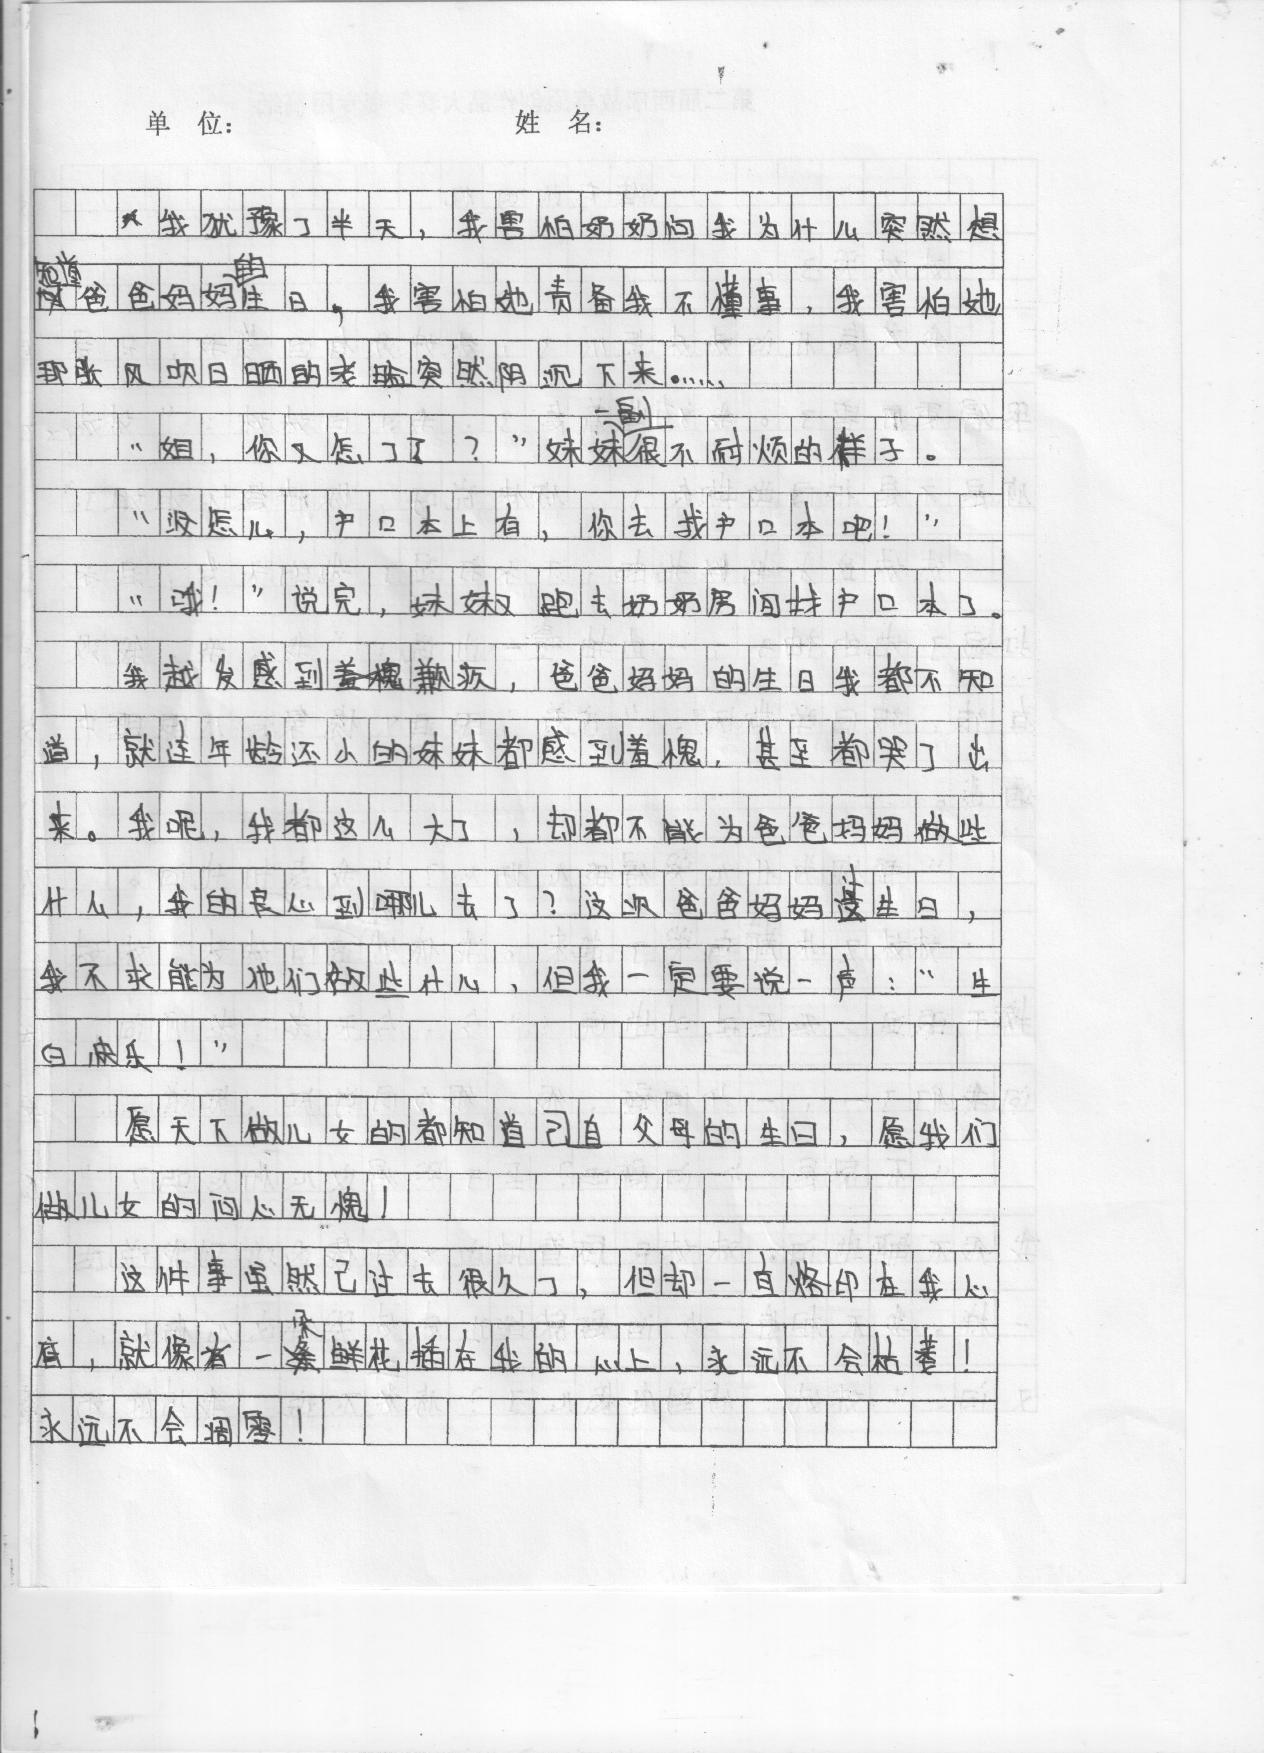 单 位： 姓 名：
我犹豫了半天，我害怕奶奶问我为什么突然想
知道爸爸妈妈的生日，我害怕她责备我不懂事，我害怕她
那张风吹日晒的老脸突然阴沉下来……
“姐，你又怎了了？”妹妹一副很不耐烦的样子。
“没怎么，户口本上有，你去找户口本吧！”
“哦！”说完，妹妹又跑去奶奶房间找户口本了。
我越发感到歉疚，爸爸妈妈的生日我都不知
道，就连年龄还小的妹妹都感到羞愧，甚至都哭了出
来。我呢，我都这么大了，却都不能为爸爸妈妈做些
什么，我的良心到哪儿去了？这次爸爸妈妈过生日，
我不求能为他们做些什么，但我一定要说一声：“生
日快乐！”
愿天下做儿女的都知道己自父母的生日，愿我们
做儿女的问心无愧！
这件事虽然已过去很久了，但却一直烙印在我心
底，就像有一朵鲜花插在我的心上，永远不会枯萎！
永远不会凋零！